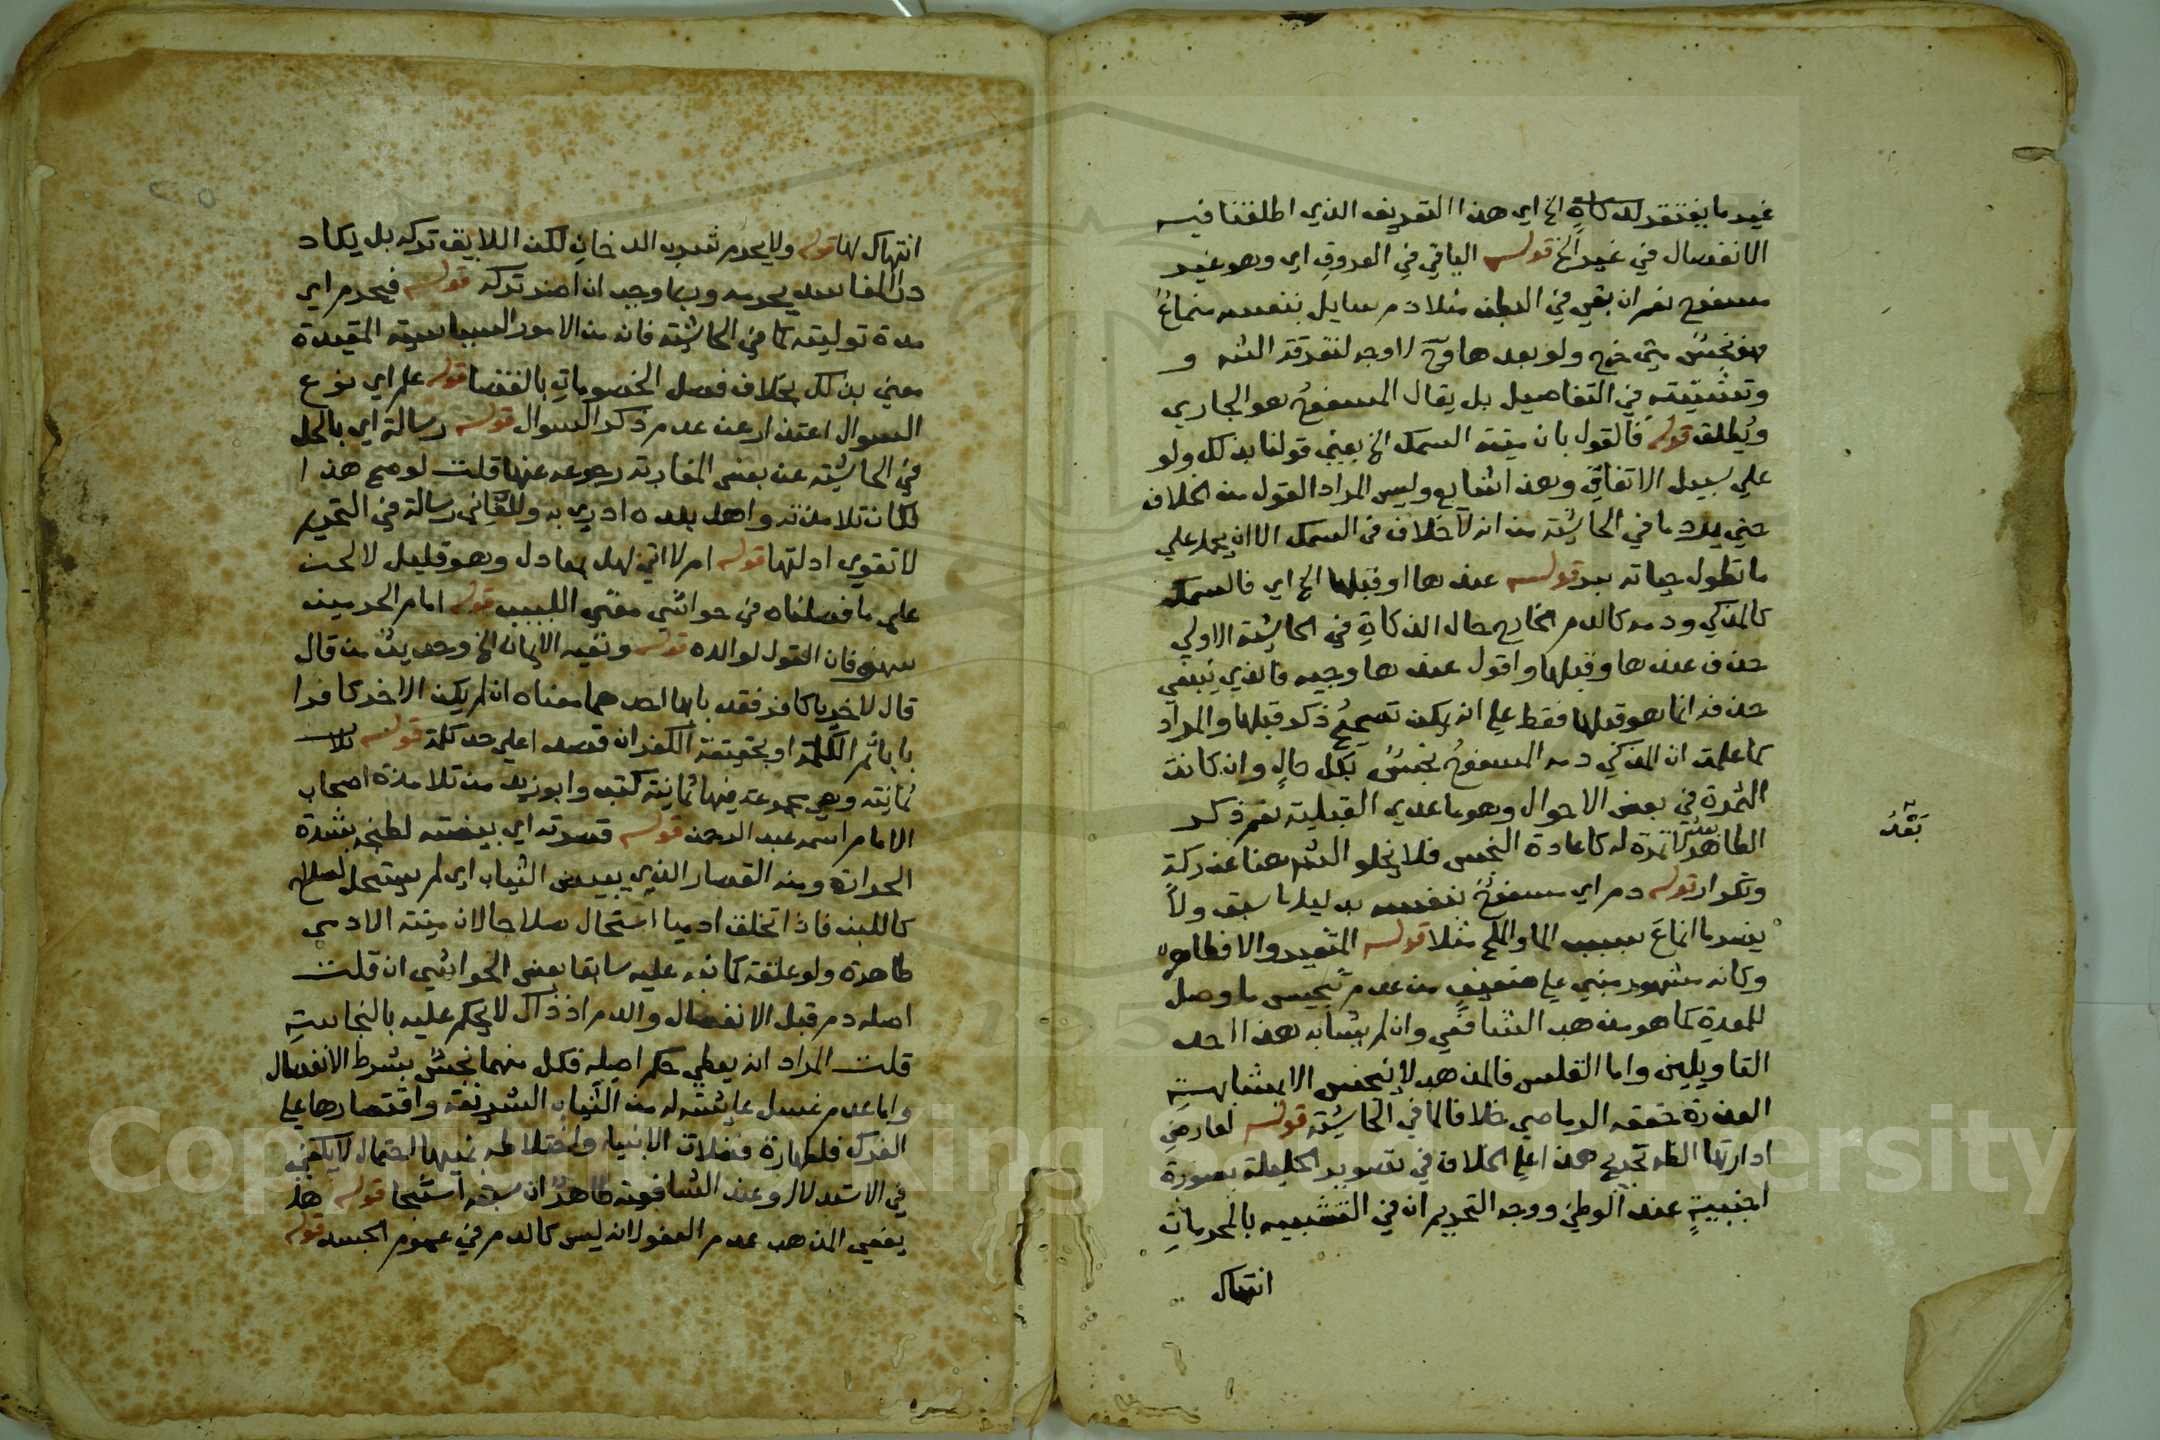 غير ما يفتقر لذكاة الخ اي هذا التقريف الذي اطلقنا فيه
الانفصال في غير الخ قوله الباقي في العروق اي وهو غير
مسفوح نعم ان بقي في البطن مثلا دم سايل بنفسه
فهو نجس متى خرج ولو بعد لا وجه لتفرقة الشه و
وتشتيته في التفاصيل بل يقال المسفوح هو الجاري
ويطلق قوله فالقول بان ميتة السمك الخ يعني قولنا بذلك ولو
علي سبيل الاتفاق وهذا شايع وليس المراد القول من الخلاف
حتي يرد ما في الحاشية من انه لا خلاف في السمك الا ان يحمل علي
ما تطول حياته ببر قوله عندها او قبلها الخ اي فالسمك
كالمذكي ودمه كالدم الخارج حال الذكاة في الحاشية الاولي
حذف عندها وقبلها واقول عندها وجيه فالذي ينبغي
حذفه انما هو قبلها فقط علي انه يمكن تصحيح ذكر قبلها والمراد
كما علمت ان المذكي دمه المسفوح نجس بكل حال وان كانت
الثمرة في بعض الاحوال وهو ما عدي القبلية نعم ذكر
الطاهر لا ثمرة له كاعادة النجس فلا يخلو الشه هنا عن ركة
بعد
وتكرار قوله دم اي مسفوح بنفسه بدليل ما سبق ولا
يضر ما انماع بسبب الما والملح مثلا قوله المتغير والا فطاهر
وكانه مشهور مبني علي ضعيف من عدم تنجيس ما وصل
للمعدة كما هو مذهب الشافعي وان لم يشابه هذا احد
التاويلين واما القلس فالمذهب لا ينجس الا بمشابهة
العذرة حققه الرماصي خلافا لما في الحاشية قوله لعارض
ادارتها انظر تخريج هذا علي الخلاف في تصوير الحليلة بصورة
اجنبية عند الوطئ ووجه التحريم ان في التشبيه بالمحرمات
انتهاك
انتهاك لها قوله ولا يحرم شرب الدخان لكن اللايق تركه بل يكاد
درا المفاسد يحرمه وربما وجب ان اضر تركه قوله فيحرم اي
مدة توليته كما في الحاشية فانه من الامور السياسية المقيدة
معني بذلك بخلاف فصل الخصومات بالقضا قوله علم اي نوع
السوال اعتذار عن عدم ذكر السوال قوله رسالة اي بالحل
في الحاشية عن بعض المغاربة رجوعه عنها قلت لو صح هذا
لكان تلامذته واهل بلده ادري به وللقاني رسالة في التحريم
لا تقوي ادلتها قوله ام لا اتي لهل بمعادل وهو قليل لا لحن
علي ما فصلناه في حواشي مغني اللبيب قوله امام الحرمين
سهو فان القول لوالده قوله ونفيه الايمان الخ وحديث من قال
قال لاخيه يا كافر فقد با بها احدهما معناه ان لم يكن الاخر كافرا
با باثم الكلمة او بحقيقة الكفر ان قصد اعلي حد كلمة قوله ثلاث
ثمانية وهي مجموعة فيها ثمانية كتب وابو زيد من تلامذة اصحاب
الامام اسمه عبد الرحمن قوله قصرته اي بيضته لطبخه بشدة
الحرارة ومنه القصار الذي يبيض الثياب اي لم يستحل لصلاح
كاللبن فاذا تخلق ادميا استحال صلاحا لان ميتة الادمي
طاهرة ولو علقة كما نبه عليه سابقا بعض الحواشي ان قلت
اصله دم قبل الانفصال والدم اذ ذاك لا يحكم عليه بالنجاسة
قلت المراد انه يعطي حكم اصله فكل منهما نجس بشرط الانفصال
واما عدم غسل عايشة له من الثياب الشريفة واقتصارها علي
الفرك فلطهارة فضلات الانبيا واختلاطه بمنيها احتمال لا يكفي
في الاستدلال وعند الشافعية طاهر ان سبقه استنجا قوله هذ
يقضي المذهب عدم العفو لانه ليس كالدم في عموم الجسد قوله